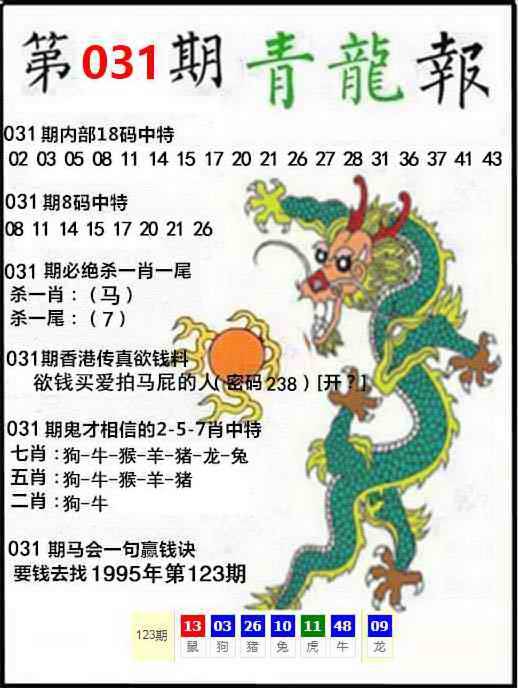 第031期青龍報
031期内部18码中特
02 03 05 08 11 14 15 17 20 21 26 27 28 31 36 37 41 43
031期8码中特
08 11 14 15 17 20 21 26
031 期必绝杀一肖一尾
杀一肖：（马）
杀一尾：（7）
031期香港传真欲钱料
欲钱买爱拍马屁的人（密码238）[开？]
031期鬼才相信的2-5-7肖中特
七肖：狗-牛-猴-羊-猪-龙-兔
五肖：狗-牛-猴-羊-猪
二肖：狗-牛
031 期马会一句赢钱诀
要钱去找1995年第123期
123期 13 03 26 10 11 48 09
鼠 狗 猪 兔 虎 牛 龙